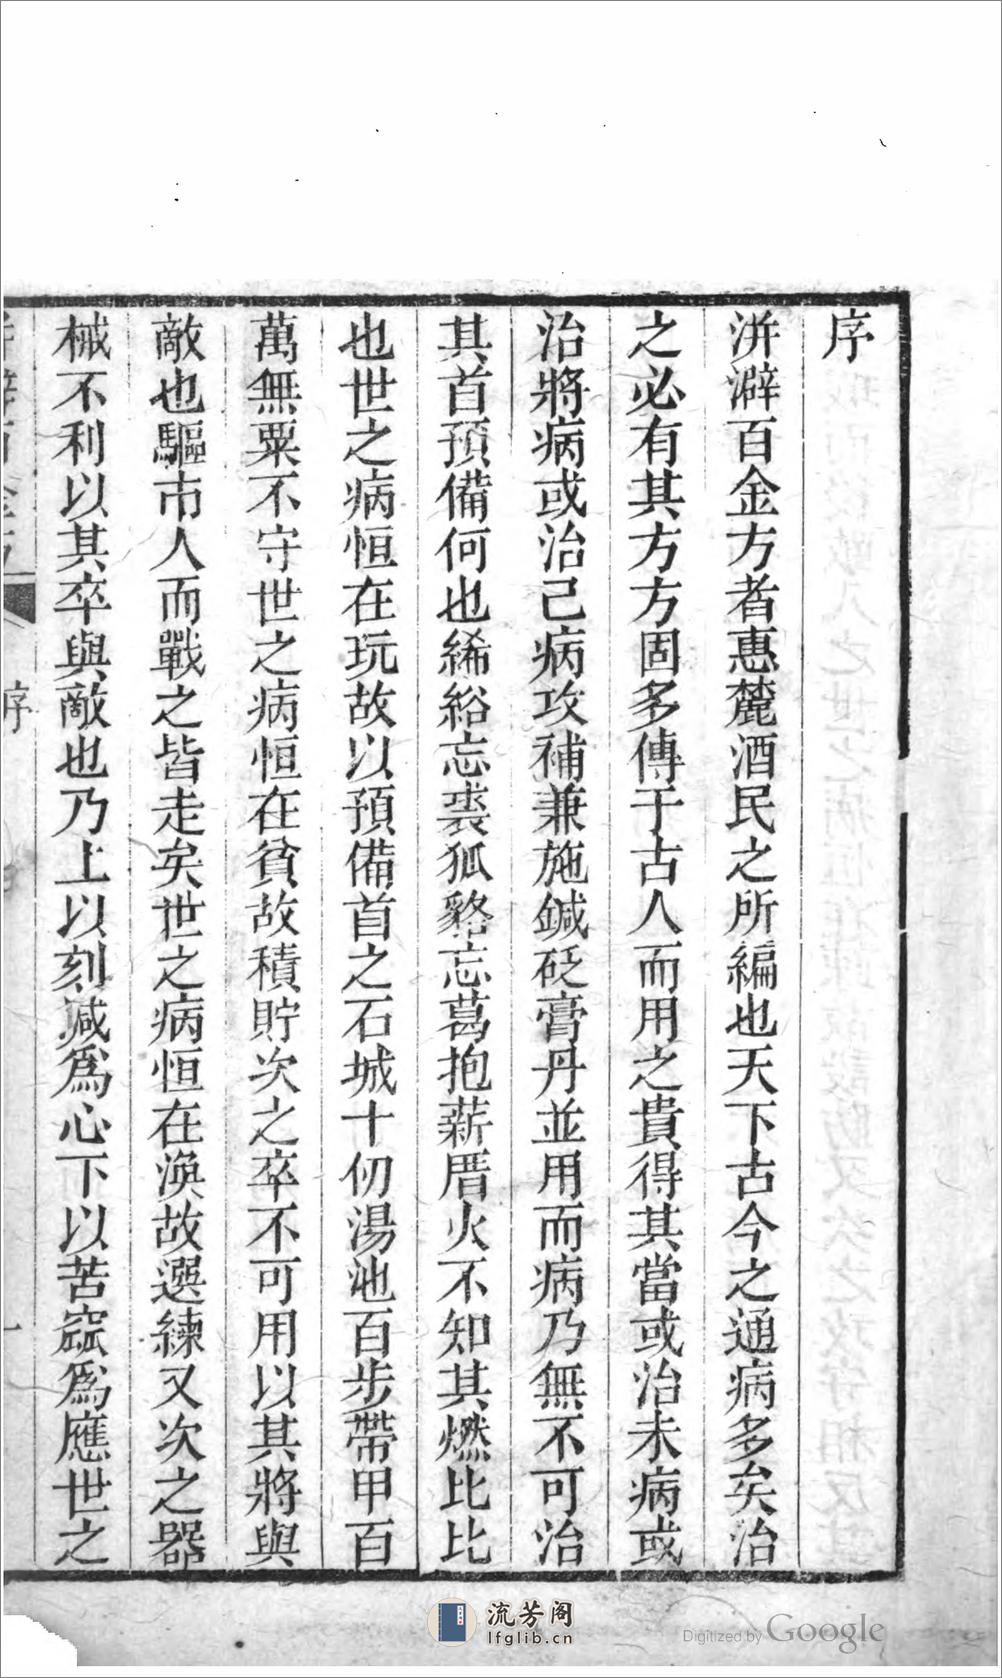 序
洴澼百金方者惠麓酒民之所編也天下古今之通病多矣治
之必有其方方固多傳于古人而用之貴得其當或治未病或
治將病或治己病攻補兼施鍼砭膏丹並用而病乃無不可治
其首預備何也絺綌忘裘狐貉忘葛抱薪厝火不知其燃比比
也世之病恒在玩故以預備首之石城十仞湯池百步帶甲百
萬無粟不守世之病恒在貧故積貯次之卒不可用以其將與
敵也驅市人而戰之皆走矣世之病恒在渙故選練又次之器
械不利以其卒與敵也乃上以刻減爲心下以苦窳爲應世之
序
一
流芳阁
lfglib.cn
Digitized by Google